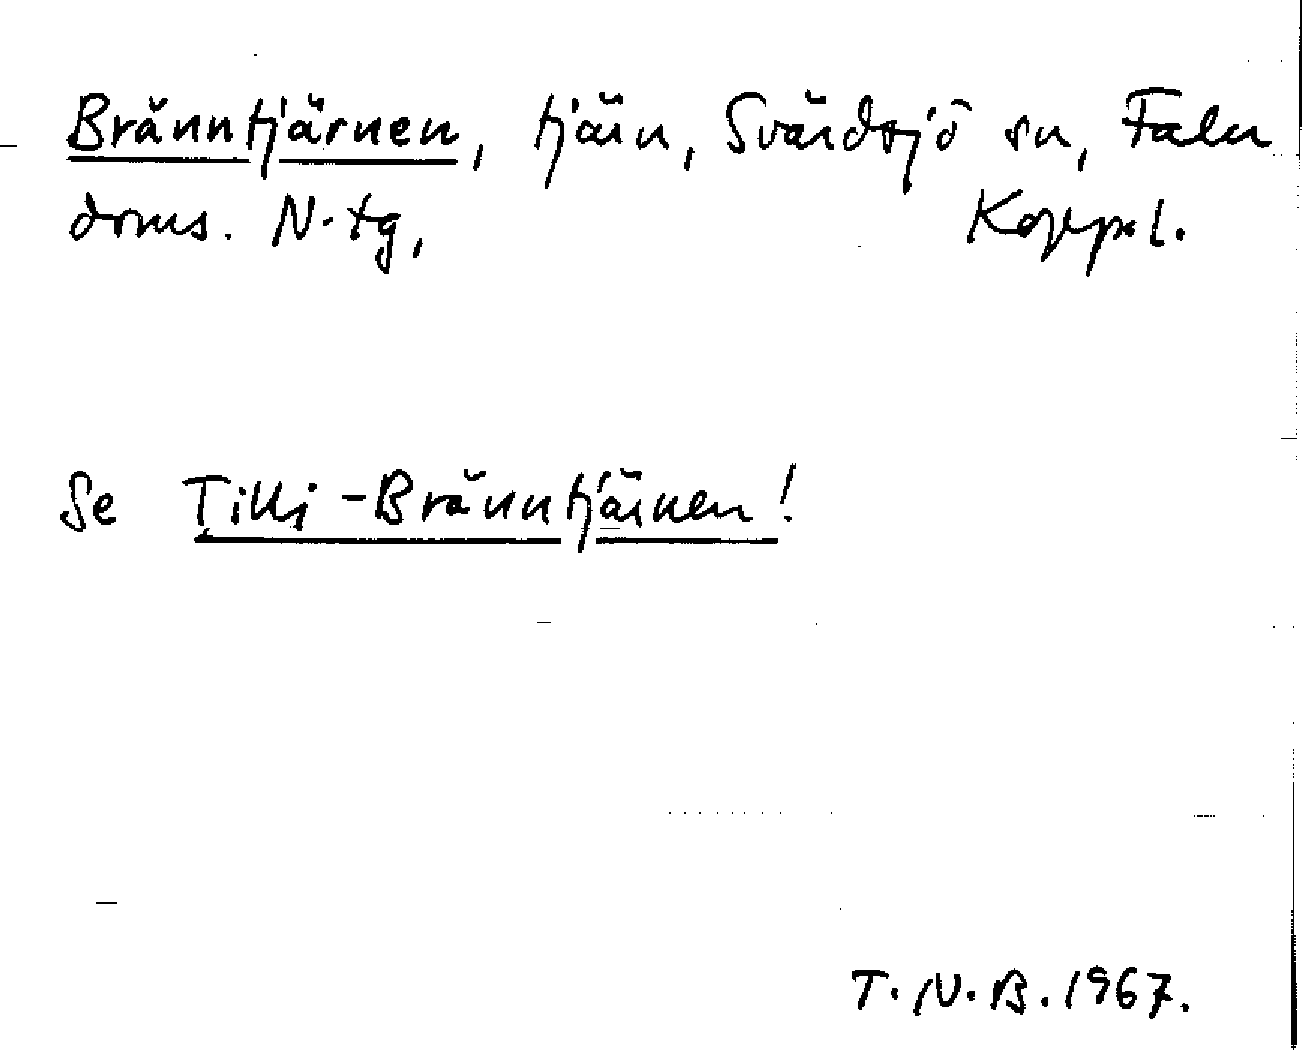 Bränntjärnen, tjärn, Svärdsjö sn, Falu
doms. N. tg, Koppl.
Se Tilli-Bränntjärnen!
T. N. B. 1967.